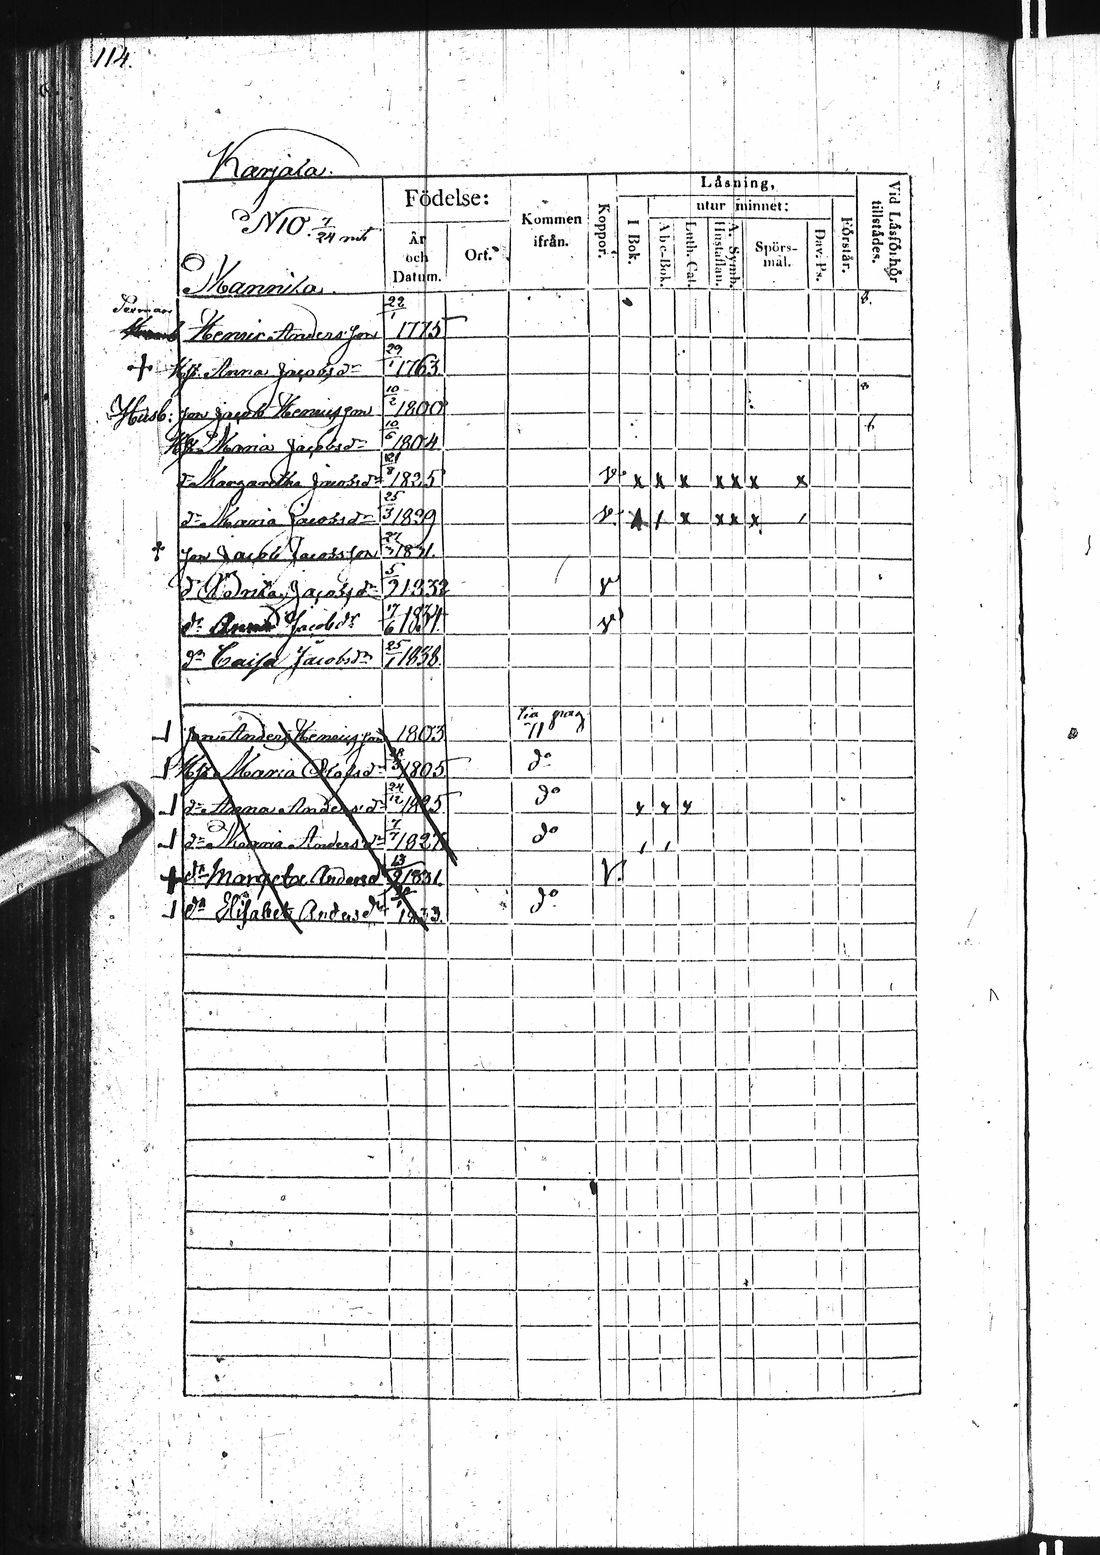 114.
Karjala.
N10. 7/24 mt
Mannila.
Födelse:
År och Datum.
Ort.
Kommen ifrån.
Koppor.
Låsning,
utur minnet:
I Bok.
Abc-Bok.
Luth. Cat.
A. Symb. Hustaflan.
Spörs-mål.
Dav. Ps.
Förstår.
Vid Låsförhör tillstådes.
Henric Andersson 22/1 1775 8.
+ H. Anna Jacobsdr 29/1 1763
Husb: son Jacob Henricsson 10/2 1800 8
H. Maria Jacobsdr 10/6 1804 6
dr Margaretha Jacobsdr 21/8 1825 v. x x x x x x x
dr Maria Jacobsdr 25/3 1829 v. x x x x
+ son Jacob Jacobsson 1831.
dr Jacobsdr 5/9 1832 v
dr Anna Jacobdr 17/6 1834. v
dr Caisa Jacobsdr 25/1 1838.
son Anders Henricsson 1803
H. Maria Olofsdr 1805 do
dr Anna Andersdr 24/12 1825 do
dr Maria Andersdr 7/7 1827 do
+ dr Margeta Andersd 13/9 1831. V.
dr Elisabet Andersdr 1833. do